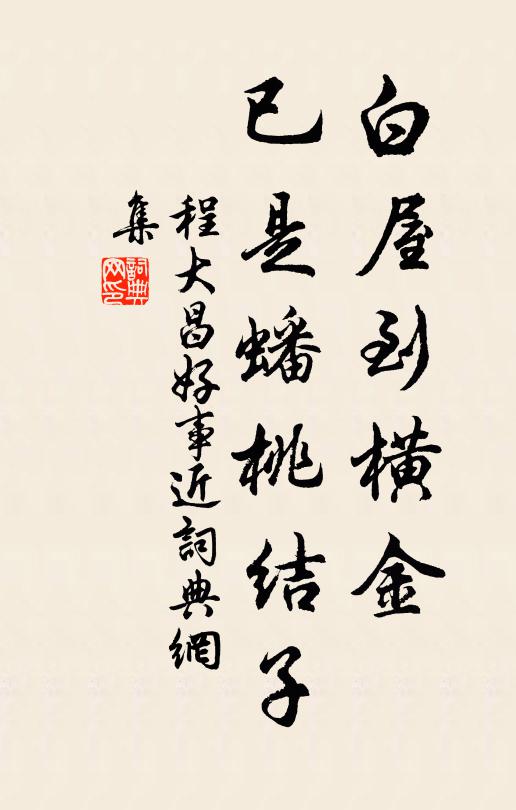 白屋到橫金
已是蟠桃結子
程大昌好事近詞典網
集
詞典
网印